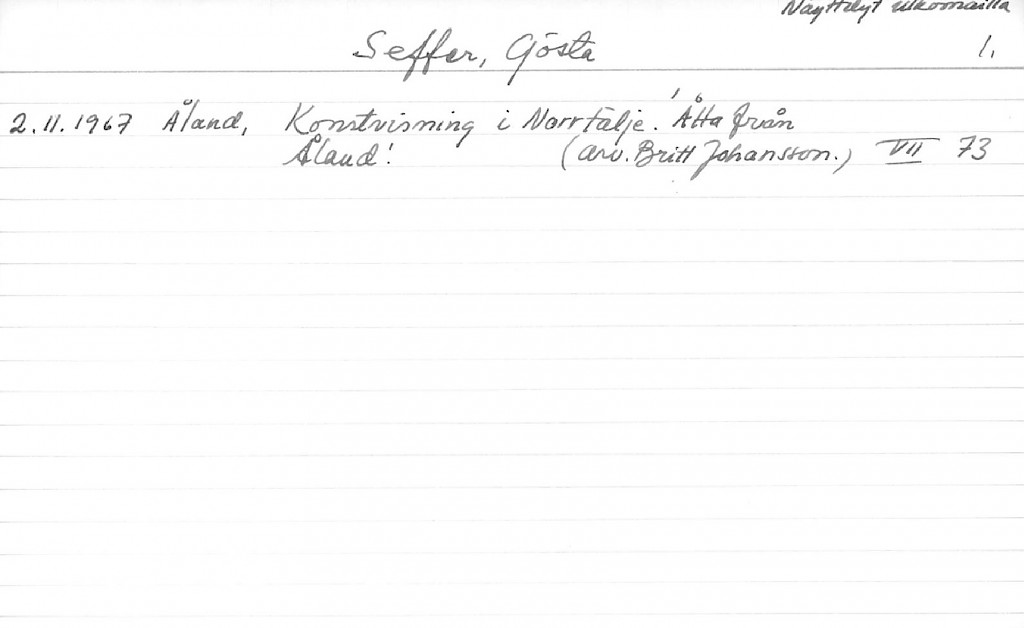 Näyttelyt ulkomailla
Seffer, Gösta 1.
2.11.1967 Åland, Konstvisning i Norrtälje. 'Åtta från
Åland! (arv. Britt Johansson.) VII 73